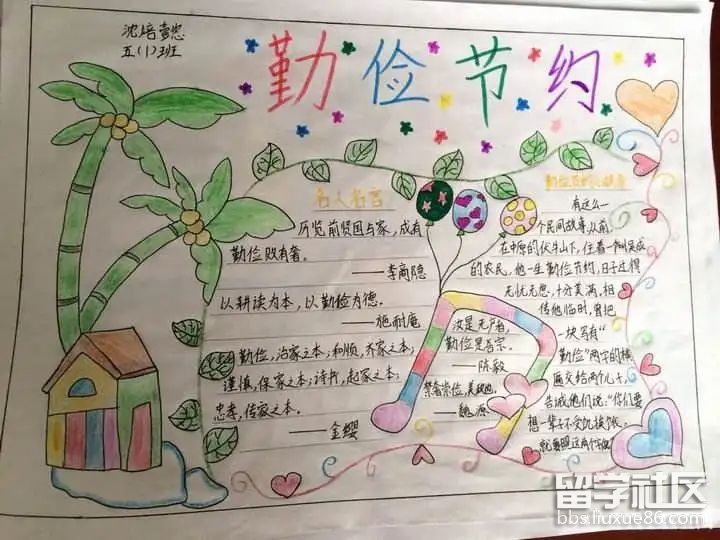 五(1)班
勤俭节约
名人名言
历览前贤国与家,成有
勤俭败有奢。
——李商隐
以耕读为本,以勤俭为德。
——施耐庵
勤俭,治家之本;和顺,齐家之本;
谨慎,保家之本;诗书,起家之本;
忠孝,传家之本。
——金缨
汝是无产者,
勤俭是吾宗。
——陈毅
——魏源
勤俭节约
有这么一
个民间故事,从前,
在中原的伏牛山下,住着一个叫吴成
的农民,他一生勤俭节约,日子过得
无忧无愁,十分美满,相
传他临时,曾把
一块写有“
勤俭”两字的横
匾交给两个儿子,
告诫他们说:“你们要
想一辈子不受饥挨饿,
就要照这两个
留学社区
bbs.liuxue86.com